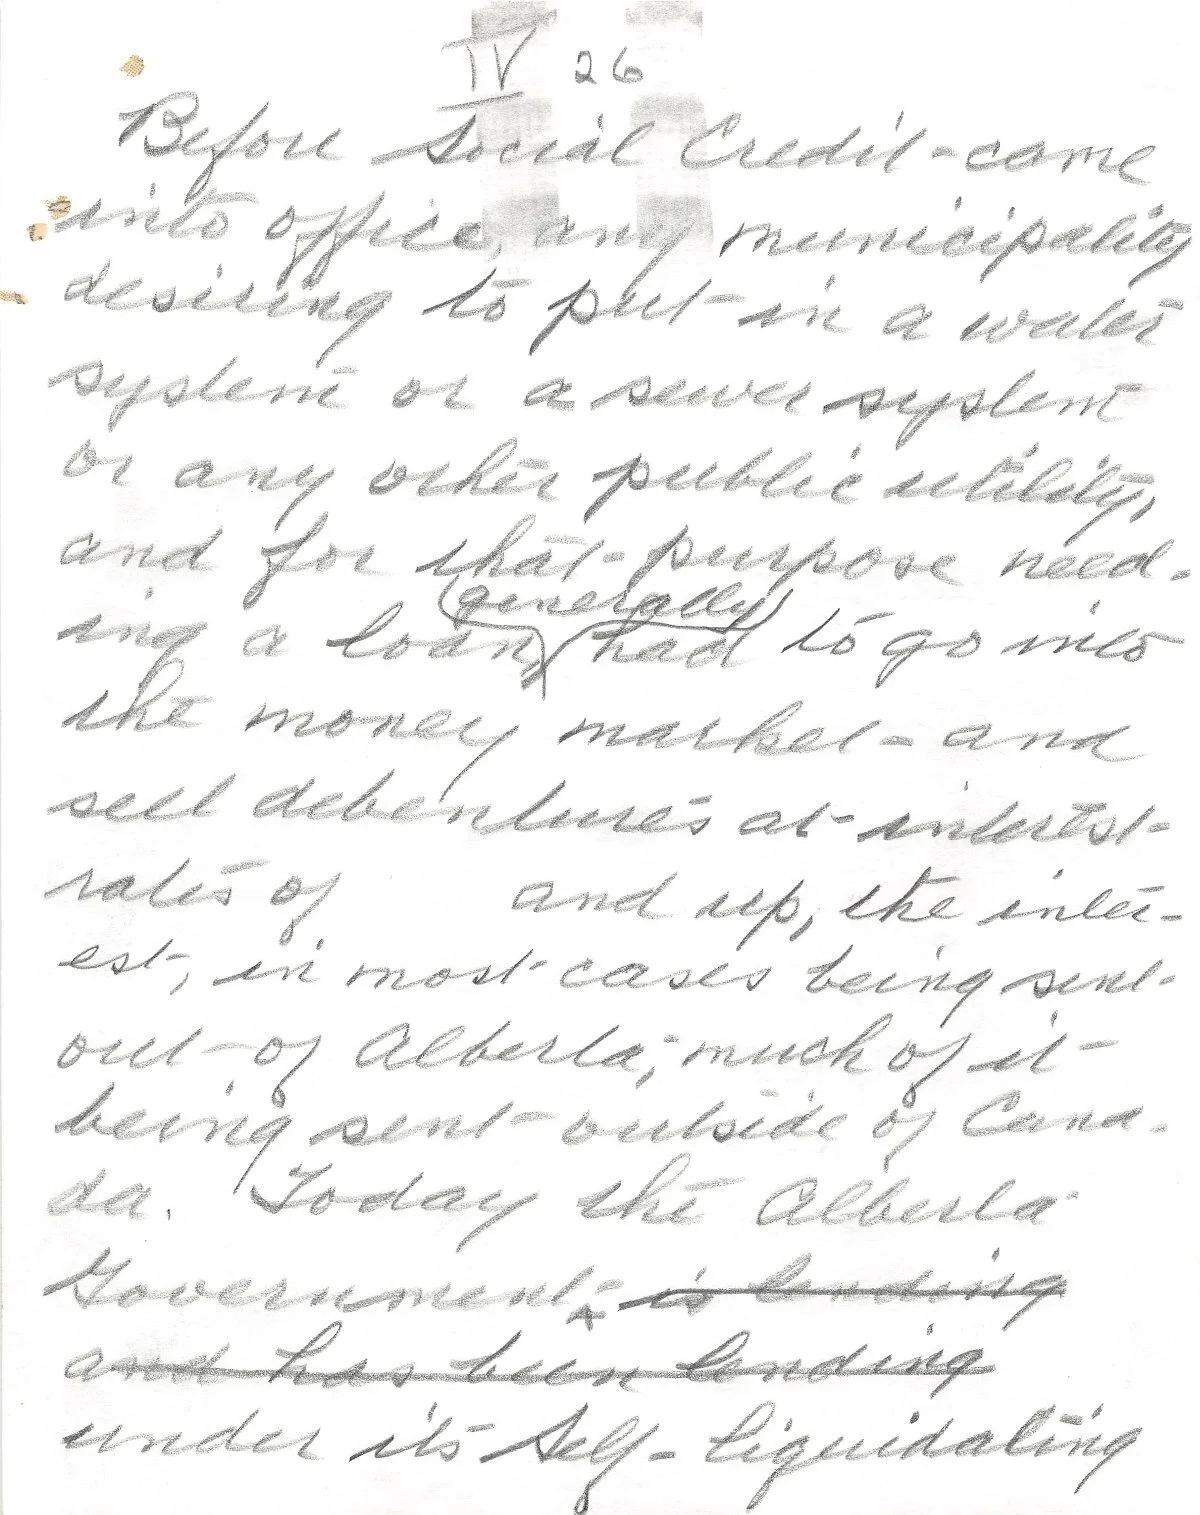 IV 26
Before Social Credit came
into office, any municipality
desiring to put in a water
system or a sewer system
or any other public utility,
and for that purpose need-
generally
ing a loan, had to go into
the money market and
sell debentures at interest
rates of and up, the inter-
est, in most cases being sent
out of Alberta; much of it
being sent outside of Cana-
da. Today the Alberta
Government is lending
and has been lending
under its Self-liquidating